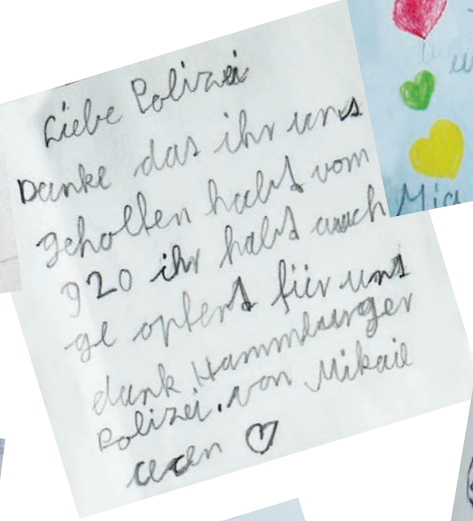 Liebe Polizei
Danke das ihr uns
geholfen habt vom
g20 ihr habt auch
ge opfert für uns
dank Hammburger
Polizei. von Mikail
Mia